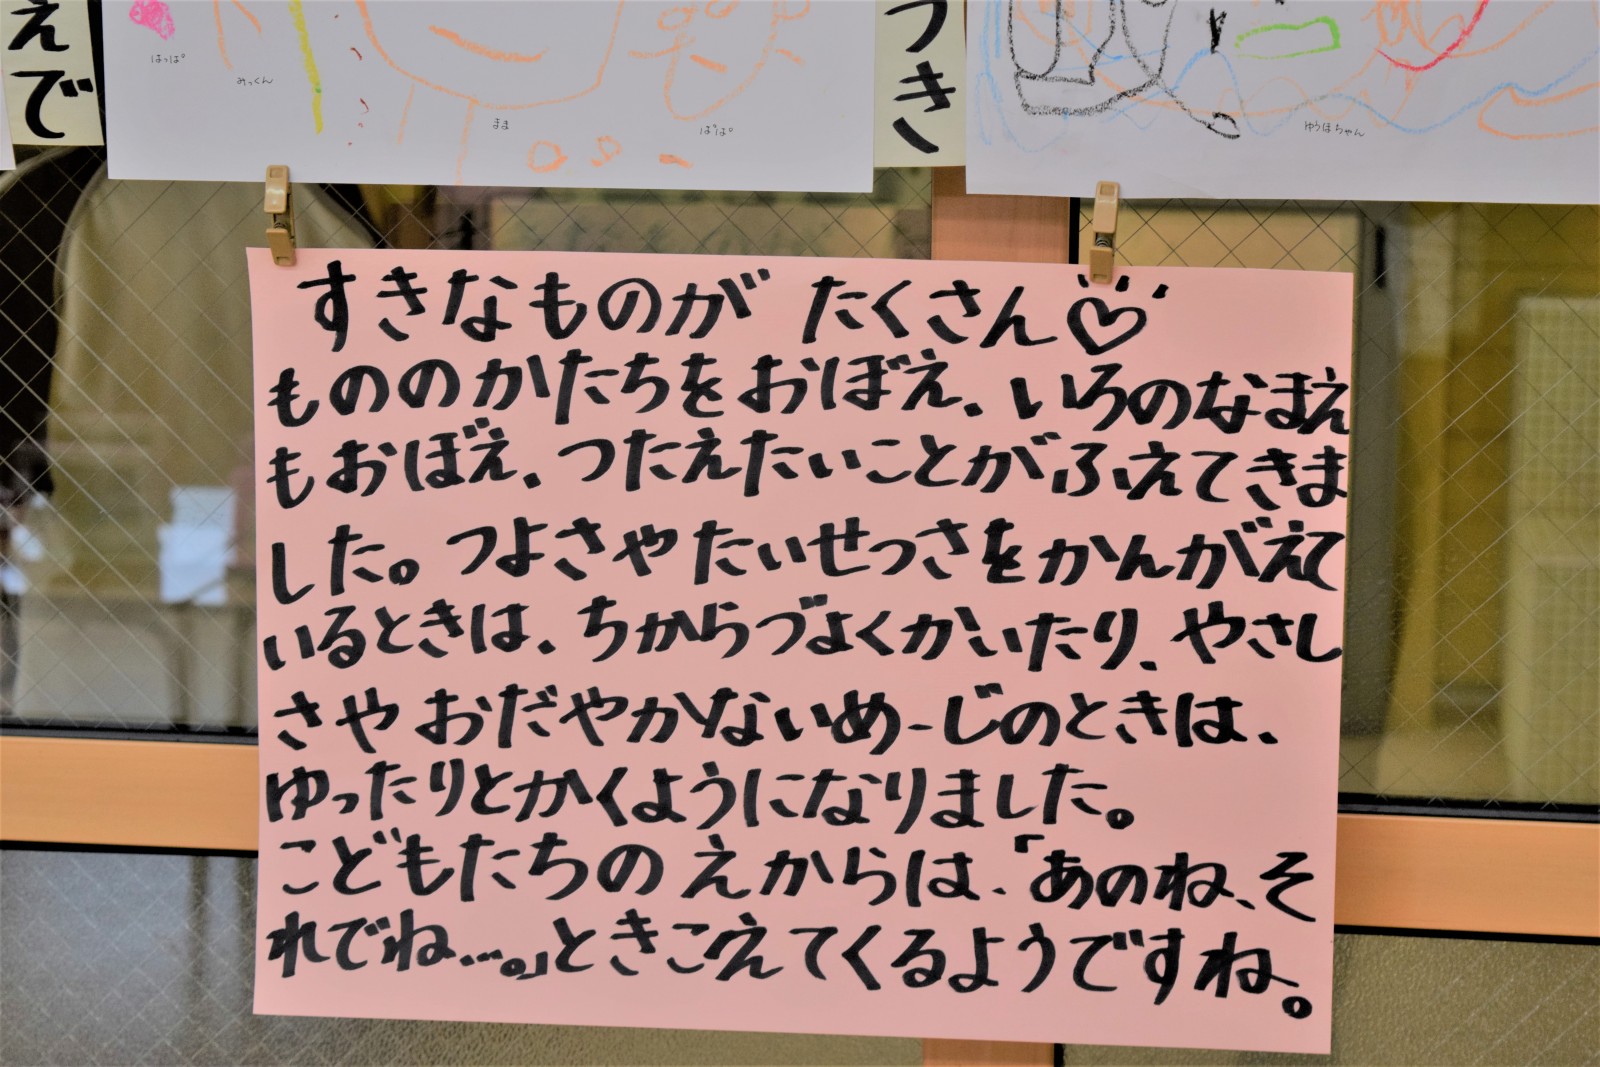 えで
つき
はっぱ
みっくん
まま
ぱぱ
ゆうほちゃん
すきなものが たくさん♡
もののかたちをおぼえ、いろのなまえ
もおぼえ、つたえたいことがふえてきま
した。つよさやたいせつさをかんがえて
いるときは、ちからづよくかいたり、やさし
さやおだやかないめーじのときは、
ゆったりとかくようになりました。
こどもたちのえからは、「あのね、そ
れでね...。」ときこえてくるようですね。